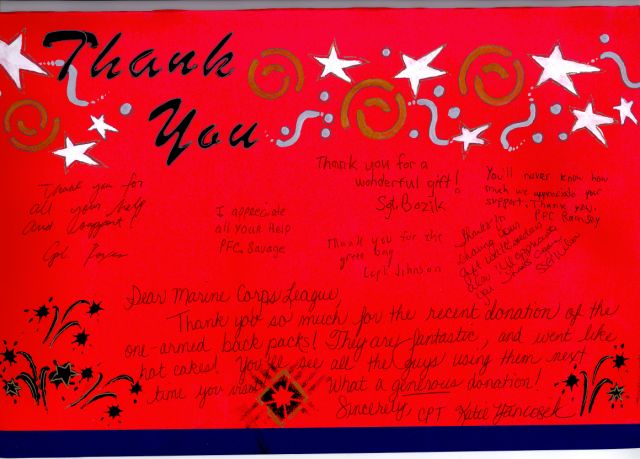 Thank
You
Thank you for
all your help
and support!
Cpl.
I appreciate
all your Help
PFC. Savage
Thank you for a
wonderful gift!
Sgt. Bozik
Thank you for the
great bag
LCpl Johnson
You'll never know how
much we appreciate your
support. Thank you,
PFC Ramsey
Thanks for
sharing your
Dear Marine Corps League,
Thank you so much for the recent donation of the
one-armed back packs! They are fantastic, and went like
hot cakes! You'll see all the guys using them next
time you visit. What a generous donation!
Sincerely, CPT Katie Yancosek